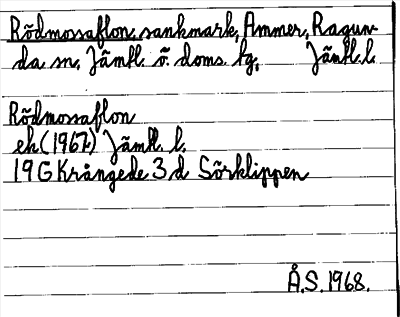 Rödmossaflon, sankmark, Ammer, Ragun-
da sn, Jämtl. ö. doms. fg, Jämtl.l.
Rödmossaflon
ek (1967) Jämtl. l.
19G Krångede 3 d Sörklippen
Å.S. 1968.